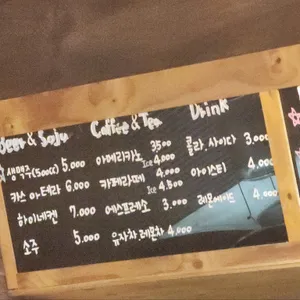 Beer & Soju
생맥주(500cc) 5.000
카스 아테라 6.000
하이네켄 7.000
소주 5.000
Coffee & Tea
아메리카노 3500
Ice 4.000
카페라떼 4.000
Ice 4.500
에스프레소 3.000
유자차 레몬차 4.000
Drink
콜라. 사이다 3.000
아이스티 4.000
레몬에이드 4.000